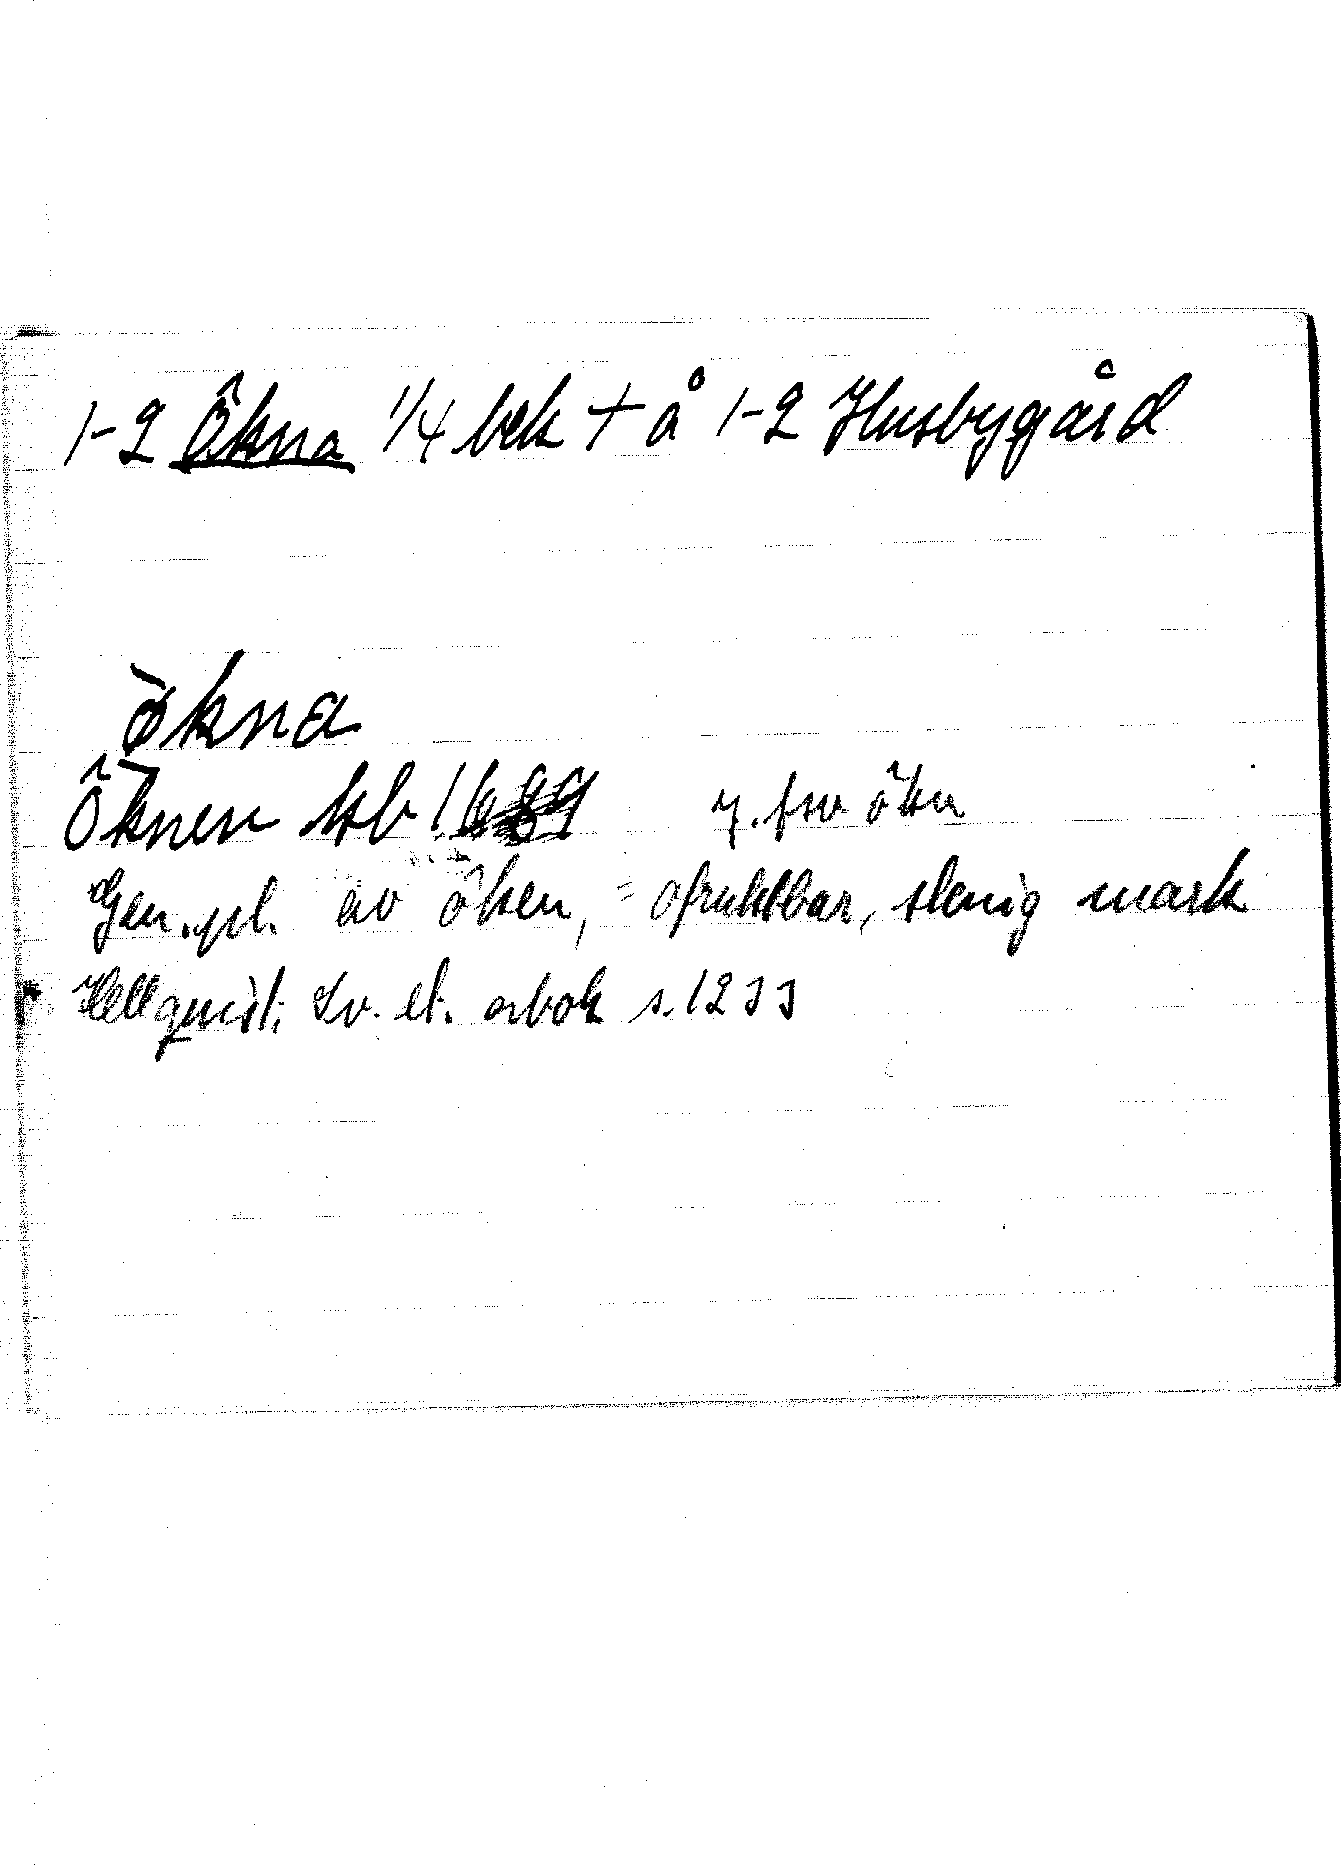 1-2 Ökna 1/4 bek + å 1-2 Husbygård
ökna
Öknen kb 1689 y. fsv ökn
Gen. pl. av öken, = ofruktbar, stenig mark
Hellquist: Sv. et. orbok s. 1233